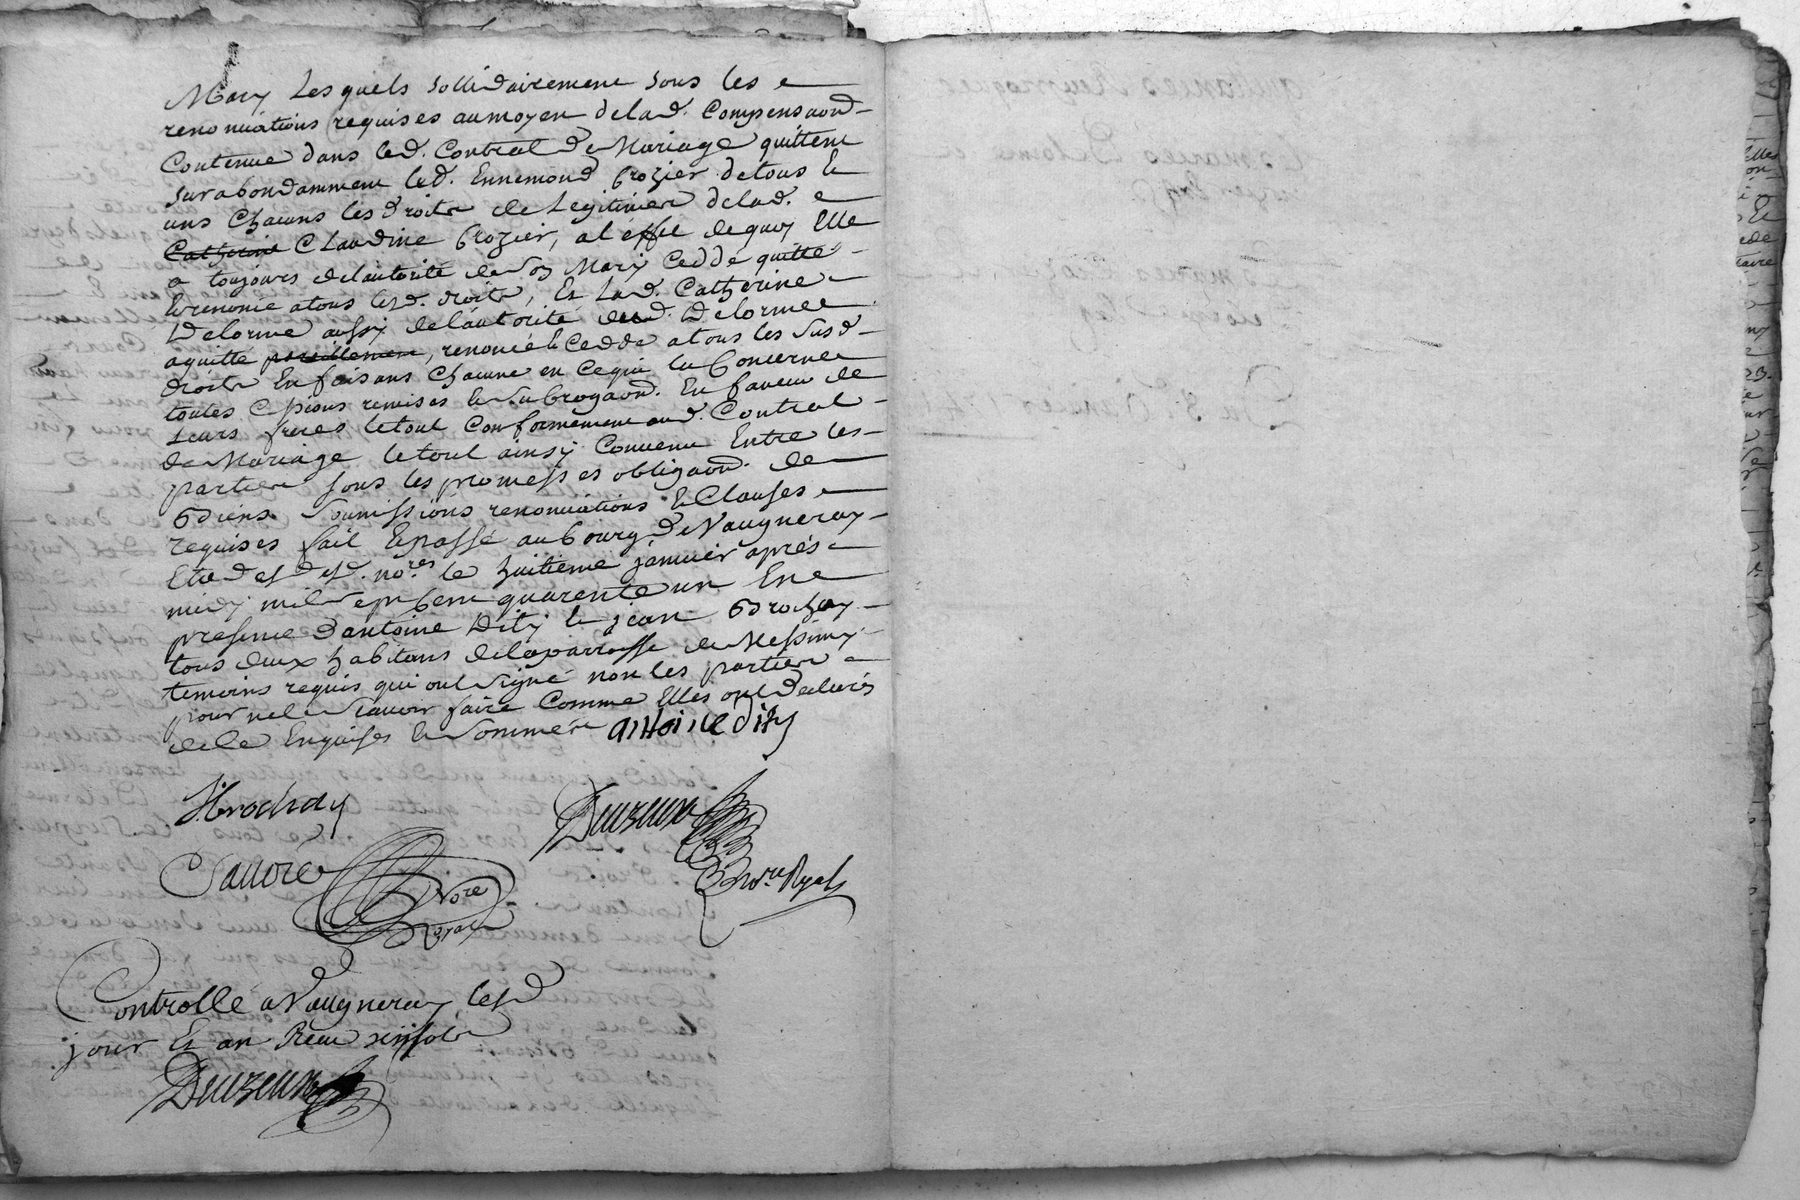 Mary Lesquels sollidairement sous les
renonciations requises au moyen de lad. Compensaond
Contenue dans led. Contrat de Mariage quittent
surabondamment led. Ennemond Grozier de tous Et
uns Chacuns les droits de Legitimes de lad.
Catherine Claudine Grozier, a l'effet de quoy Elle
a toujours de l'autorité de son Mary Cedde quitte
Et renonce a tous lesd. droits, Et Lad. Catherine
Delorme aussy de l'autorité dud. Delorme
a quitté pareillement, renoncé Et Cedde a tous les susd
droits En faisant Chacune en Ce qui la Concerne
toutes Cessions remises Et subrogaon. En faveur de
Leurs freres le tout Conformement aud. Contrat
de Mariage le tout ainsy Convenu Entre les
parties sous les promesses obligaon. de
biens soumissions renonciations Et Clauses
requises fait Et passé au bourg de Vaugneray
Etude desd. nores. le huitieme janvier après
midy mil sept Cent quarente un En
presence d'antoine Dity Et jean Brochay
tous deux habitans de la parroisse de Messimy
temoins requis qui ont signé non les parties
pour ne le sçavoir faire Comme Elles ont declaré
de le Enquises Et Sommées antoine dity
J brochay
Sauore nore royal
nore Royal
Controllé a Vaugneray lesd
jour Et an Receu